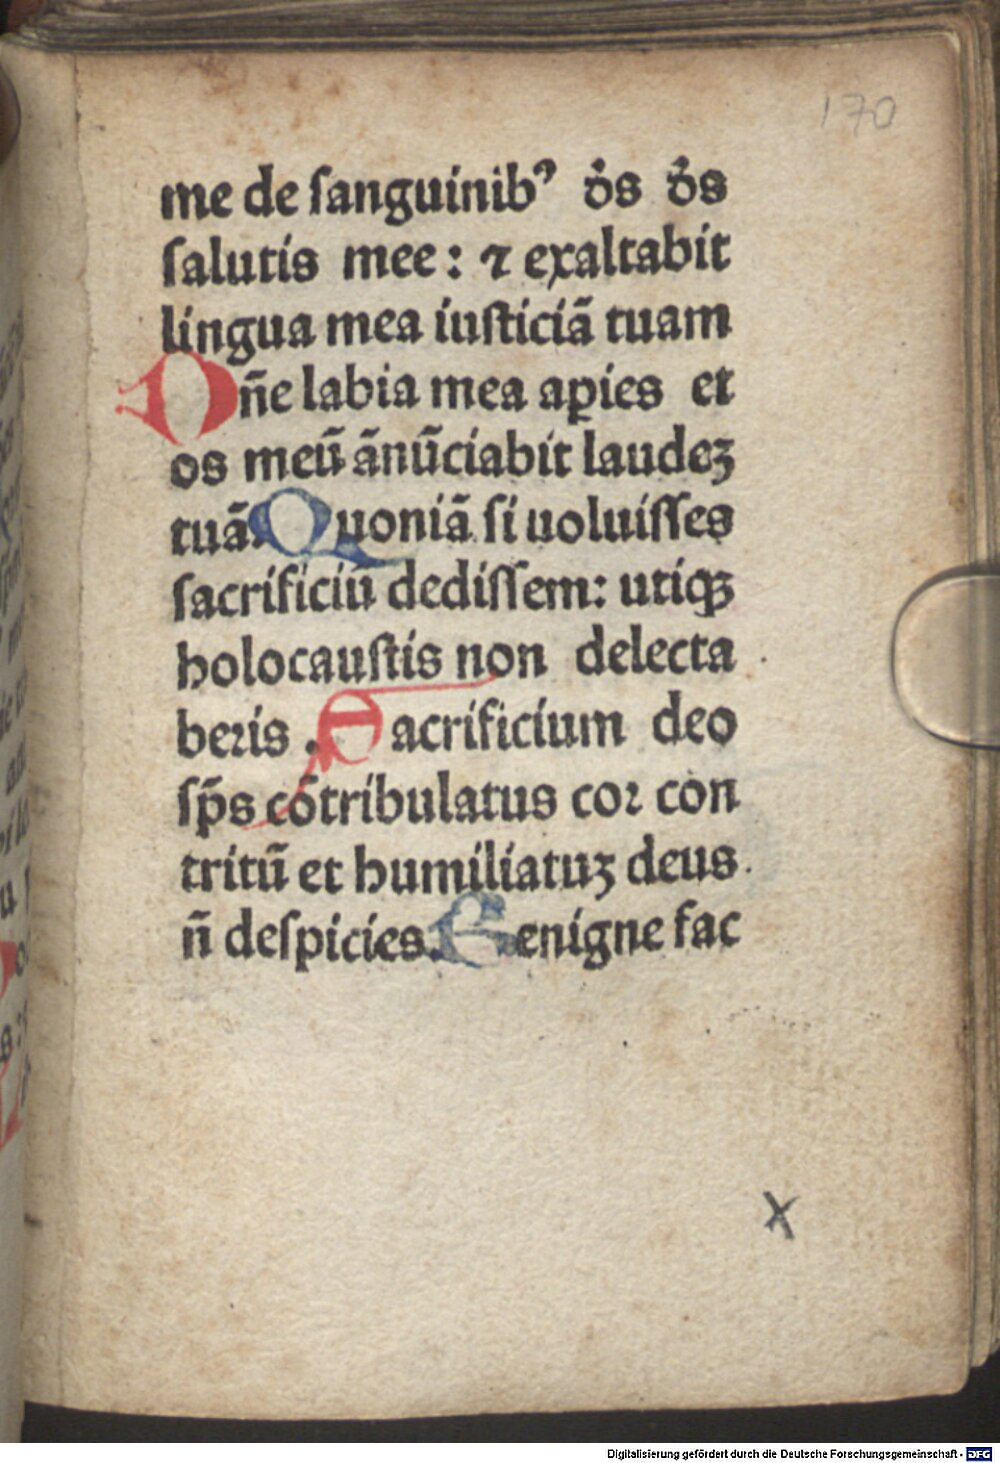 170
me de ſanguinibꝰ ds̄ ds̄
ſalutis mee: ⁊ exaltabit
lingua mea iuſticiā tuam
Dn̄e labia mea aꝑies et
os meū ānūciabit laudeꝫ
tuā. Quoniā ſi uoluiſſes
ſacrificiū dediſſem: utiqꝫ
holocauſtis non delecta
beꝛis. Sacrificium deo
ſp̄s cōtribulatus coꝛ con
tritū et humiliatuꝫ deus
n̄ deſpicies. Benigne fac
x
Digitalisierung gefördert durch die Deutsche Forschungsgemeinschaft - DFG